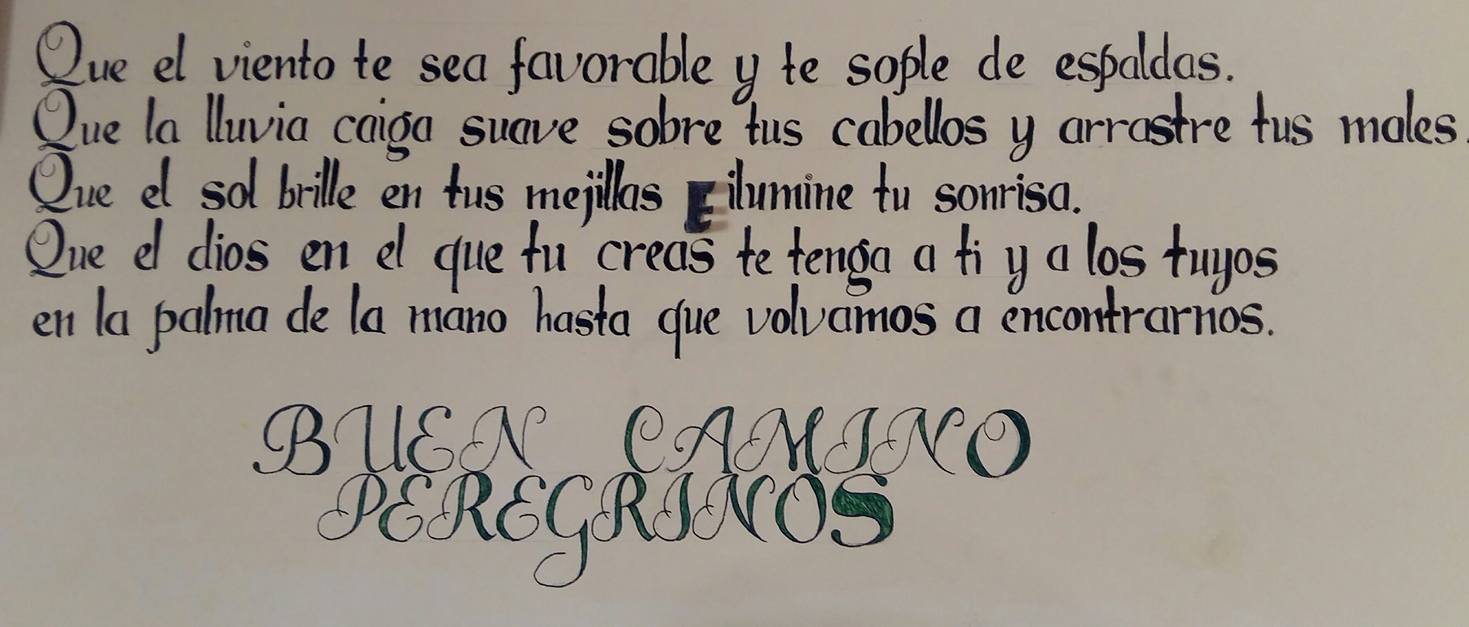 Que el viento te sea favorable y te sople de espaldas.
Que la lluvia caiga suave sobre tus cabellos y arrastre tus males.
Que el sol brille en tus mejillas E ilumine tu sonrisa.
Que el dios en el que tu creas te tenga a ti y a los tuyos
en la palma de la mano hasta que volvamos a encontrarnos.
BUEN CAMINO
PEREGRINOS